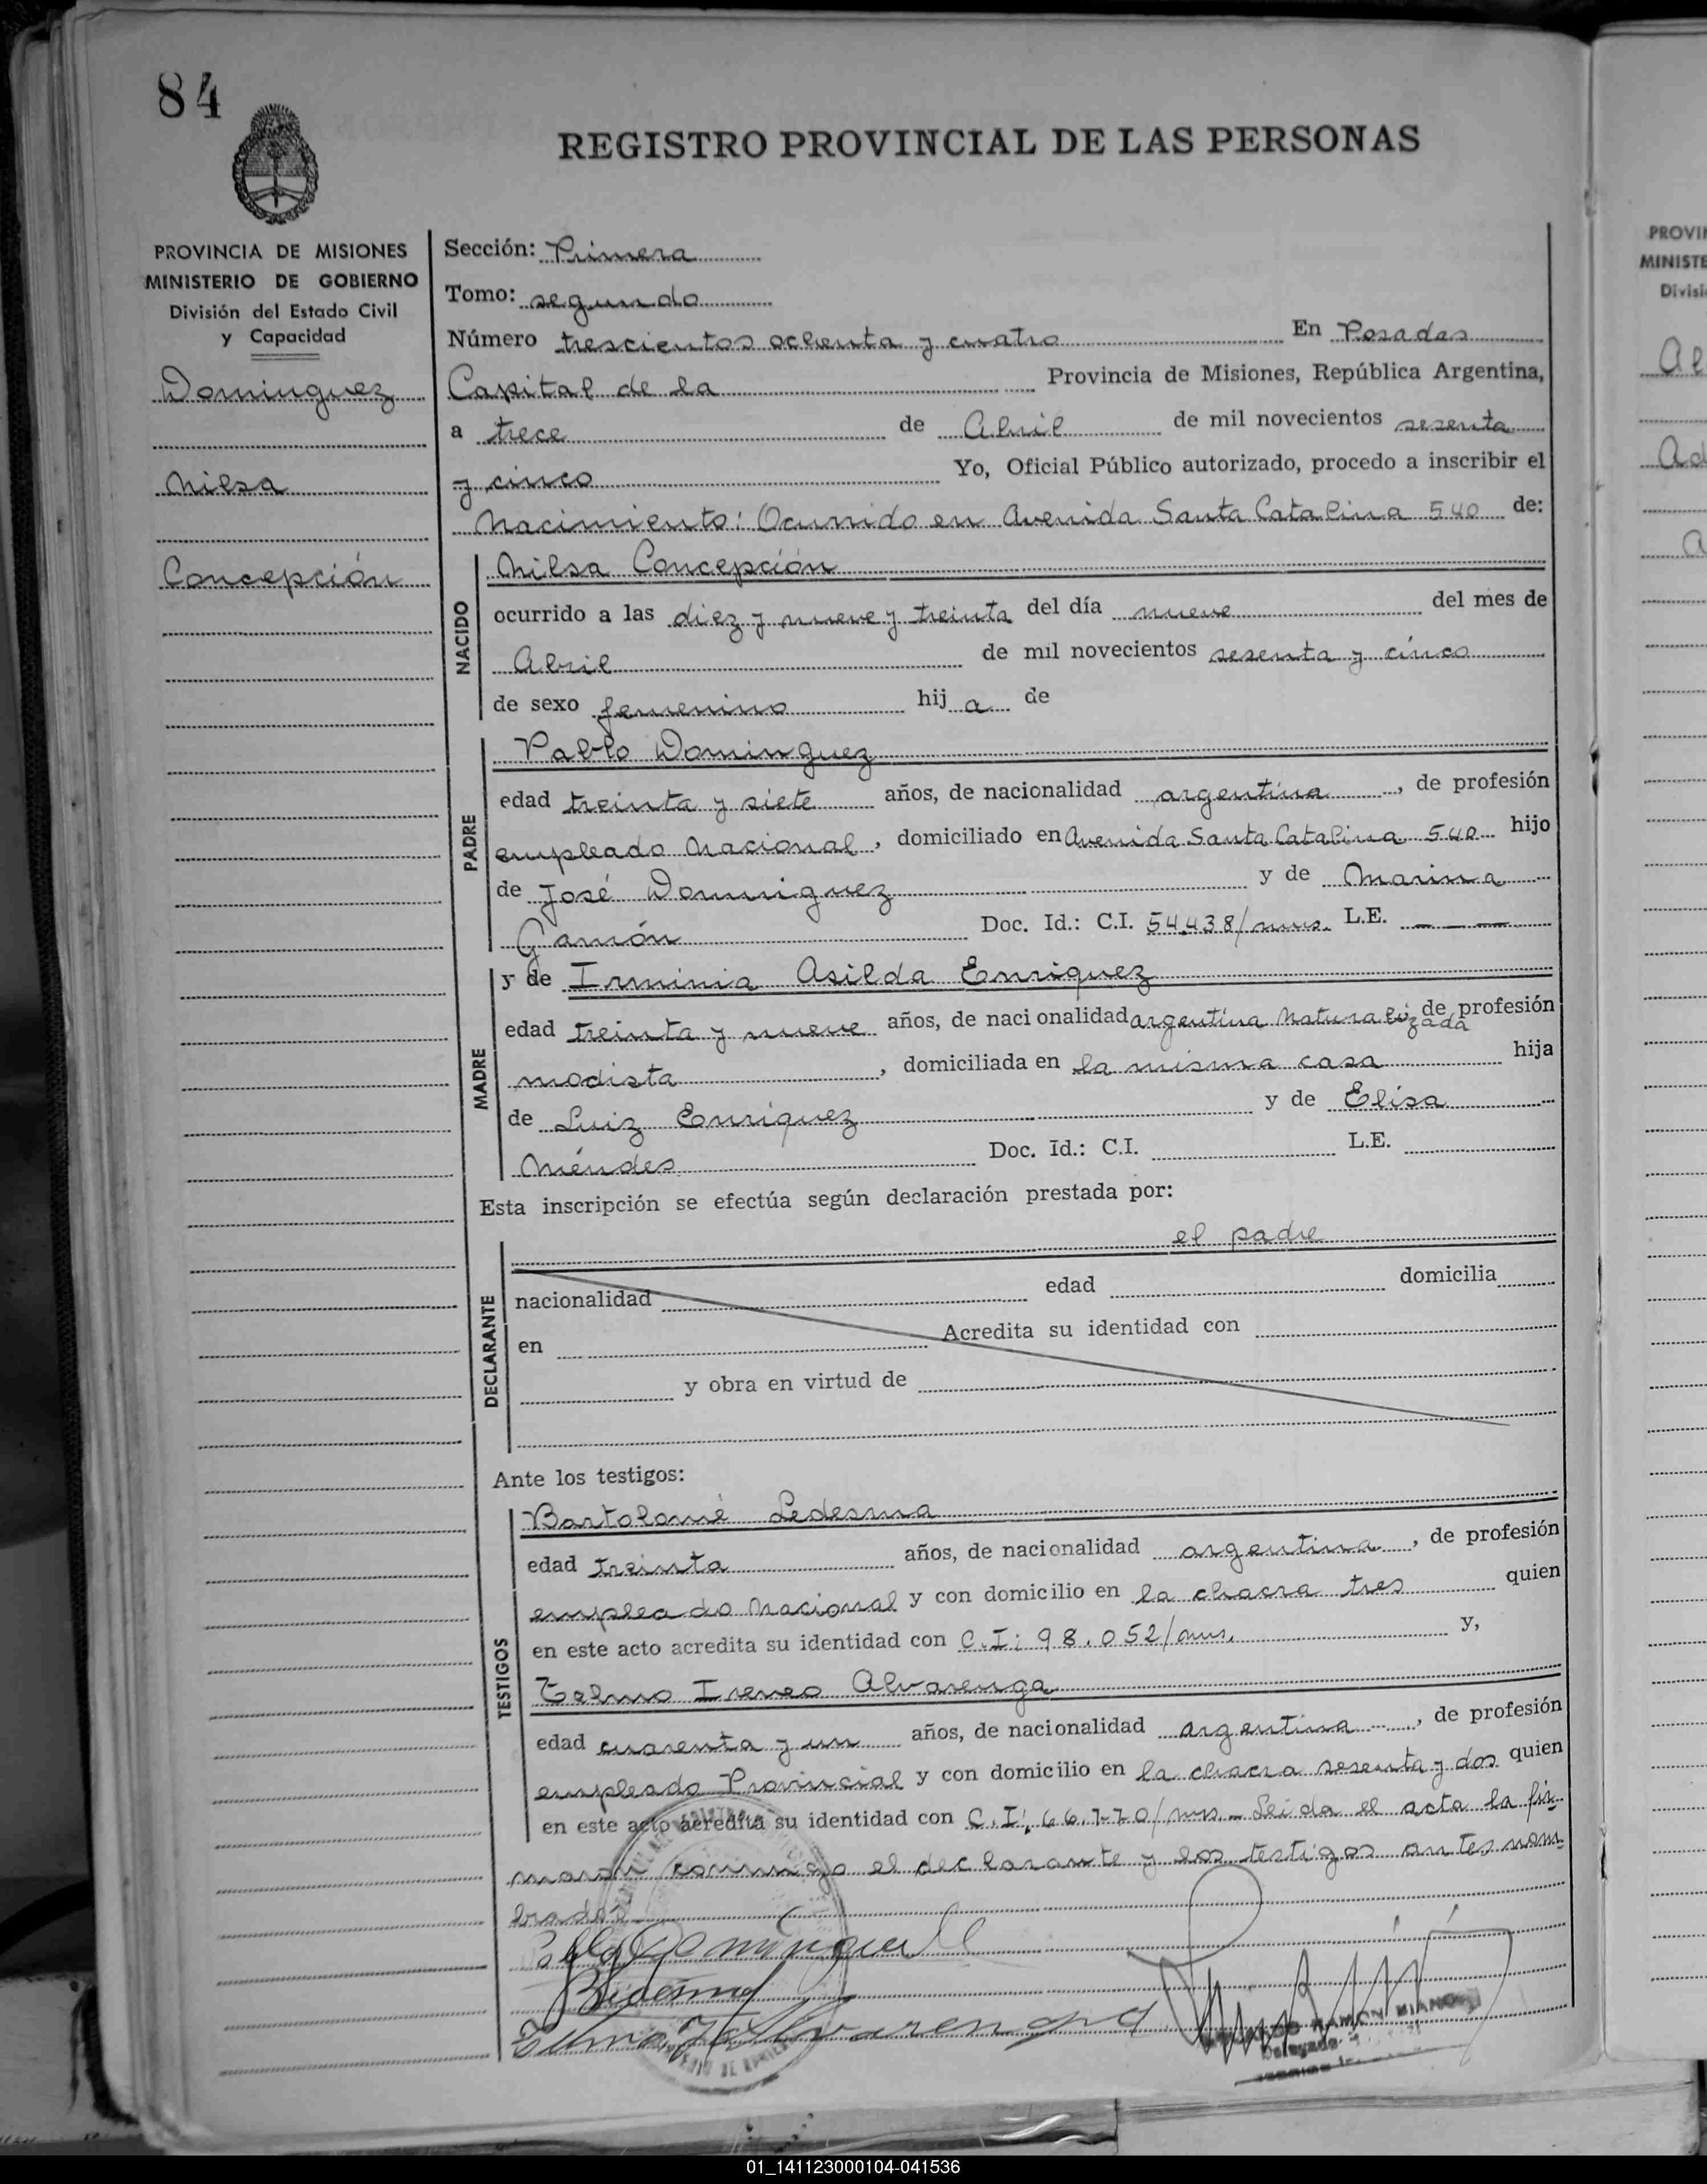 84
REGISTRO PROVINCIAL DE LAS PERSONAS
PROVINCIA DE MISIONES
MINISTERIO DE GOBIERNO
División del Estado Civil
y Capacidad
Dominguez
Nilsa
Concepción
Sección: Primera
Tomo: segundo
Número trescientos ochenta y cuatro En Posadas
Capital de la Provincia de Misiones, República Argentina,
a trece de Abril de mil novecientos sesenta
y cinco Yo, Oficial Público autorizado, procedo a inscribir el
Nacimiento: Ocurrido en Avenida Santa Catalina 540 de:
NACIDO
Nilsa Concepción
ocurrido a las diez y nueve y treinta del día nueve del mes de
Abril de mil novecientos sesenta y cinco
de sexo femenino hij a de
PADRE
Pablo Dominguez
edad treinta y siete años, de nacionalidad argentina, de profesión
empleado Nacional, domiciliado en Avenida Santa Catalina 540 hijo
de José Dominguez y de Marina
Gamón Doc. Id.: C.I. 54.438/mns. L.E. — — —
MADRE
y de Irminia Asilda Enriquez
edad treinta y nueve años, de nacionalidad argentina Naturalizada de profesión
modista, domiciliada en la misma casa hija
de Luiz Enriquez y de Elisa
Méndes Doc. Id.: C.I. L.E.
Esta inscripción se efectúa según declaración prestada por:
DECLARANTE
el padre
nacionalidad edad domicilia
en Acredita su identidad con
y obra en virtud de
Ante los testigos:
TESTIGOS
Bartolomé Ledesma
edad treinta años, de nacionalidad argentina, de profesión
empleado Nacional y con domicilio en la chacra tres quien
en este acto acredita su identidad con C.I: 98.052/mns. y,
Telmo Ireneo Alvarenga
edad cuarenta y un años, de nacionalidad argentina, de profesión
empleado Provincial y con domicilio en la chacra sesenta y dos quien
en este acto acredita su identidad con C.I: 66.770/mns. - Leida el acta la fir-
maron conmigo el declarante y los testigos antes nom-
brados
Pablo Dominguez
BLedesma
Telmo I Alvarenga
RAMON
Delegado
PROVIN
MINISTE
Divisi
Al
Ad
01_141123000104-041536